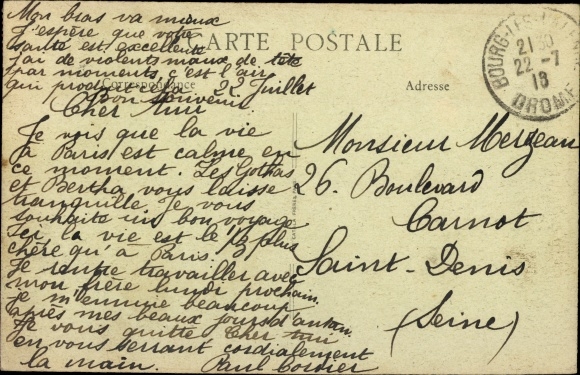 Mon bras va mieux
J'espère que votre
santé est excellente
j'ai de violents maux de tête
par moments, c'est l'air
qui produit cela
Bon Souvenir
CARTE POSTALE
Correspondance
Adresse
BOURG-LES-VALENCE
21 30
22 - 7
18
DROME
22 Juillet
Cher Ami
Je vois que la vie
à Paris est calme en
ce moment. Les Gothas
et Bertha vous laisse
tranquille. Je vous
souhaite un bon voyage
Ici, la vie est le plus
chère qu'à Paris.
Je rentre travailler avec
mon frère lundi prochain.
je m'ennuie beaucoup
après mes beaux jours d'antan.
Je vous quitte Cher
en vous serrant cordialement
la main. Paul Cordier
Monsieur Merzeau
26. Boulevard
Carnot
Saint-Denis
(Seine)